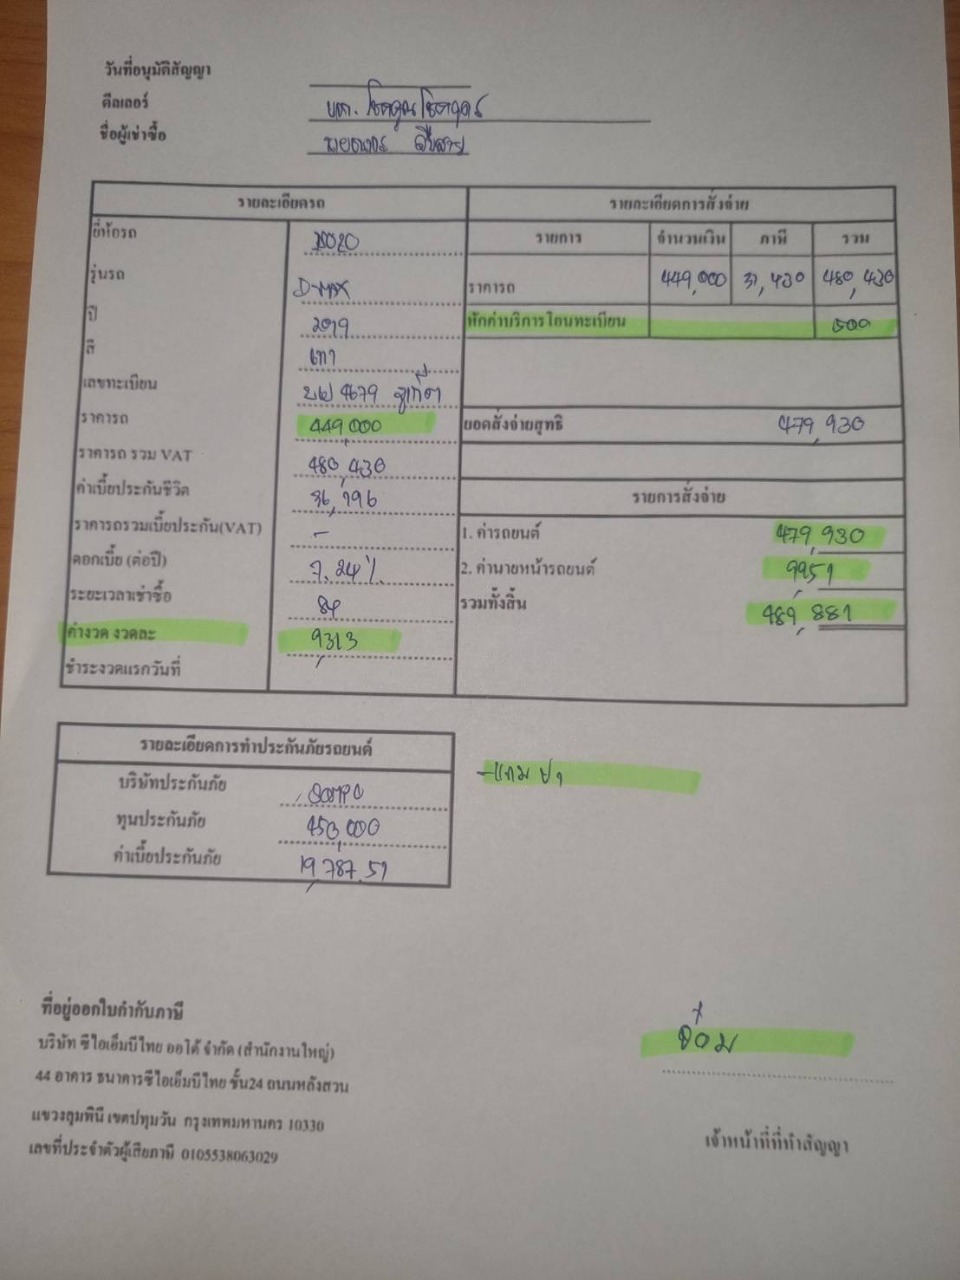 วันที่อนุมัติสัญญา
ดีลเลอร์ บจก.
ชื่อผู้เช่าซื้อ
รายละเอียดรถ
ยี่ห้อรถ
รุ่นรถ D-max
ปี 2019
สี เทา
เลขทะเบียน 4679 ภูเก็ต
ราคารถ 449,000
ราคารถ รวม VAT 480,430
ค่าเบี้ยประกันชีวิต 36,796
ราคารถรวมเบี้ยประกัน(VAT) -
ดอกเบี้ย (ต่อปี) 7.24%
ระยะเวลาเช่าซื้อ 84
ค่างวด งวดละ 9,313
ชำระงวดแรกวันที่
รายละเอียดการสั่งจ่าย
รายการ จำนวนเงิน ภาษี รวม
ราคารถ 449,000 31,430 480,430
หักค่าบริการโอนทะเบียน 500
ยอดสั่งจ่ายสุทธิ 479,930
รายการสั่งจ่าย
1. ค่ารถยนต์ 479,930
2. ค่านายหน้ารถยนต์ 9,951
รวมทั้งสิ้น 489,881
รายละเอียดการทำประกันภัยรถยนต์
บริษัทประกันภัย
ทุนประกันภัย 450,000
ค่าเบี้ยประกันภัย 19,787.51
-แถม ป1
ที่อยู่ออกใบกำกับภาษี
บริษัท ซีไอเอ็มบีไทย ออโต้ จำกัด (สำนักงานใหญ่)
44 อาคาร ธนาคารซีไอเอ็มบีไทย ชั้น24 ถนนหลังสวน
แขวงลุมพินี เขตปทุมวัน กรุงเทพมหานคร 10330
เลขที่ประจำตัวผู้เสียภาษี 0105538063029
เจ้าหน้าที่ที่ทำสัญญา